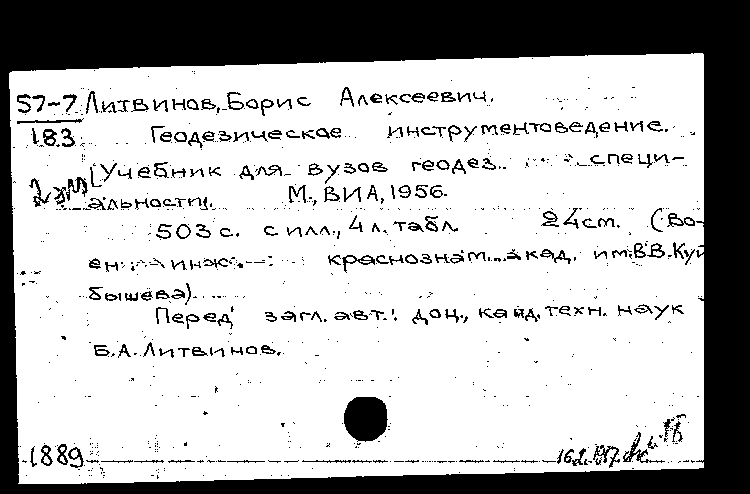 57-7 Литвинов, Борис Алексеевич.
183 Геодезическое инструментоведение.
[Учебник для вузов геодез. специ-
альности]. М., ВИА, 1956.
503 с. с илл., 4 л. табл. 24см. (Во-
ен. инж. краснознам. акад. им. В.В. Куй
бышева).
Перед загл. авт.: доц., канд. техн. наук
Б.А. Литвинов.
1889